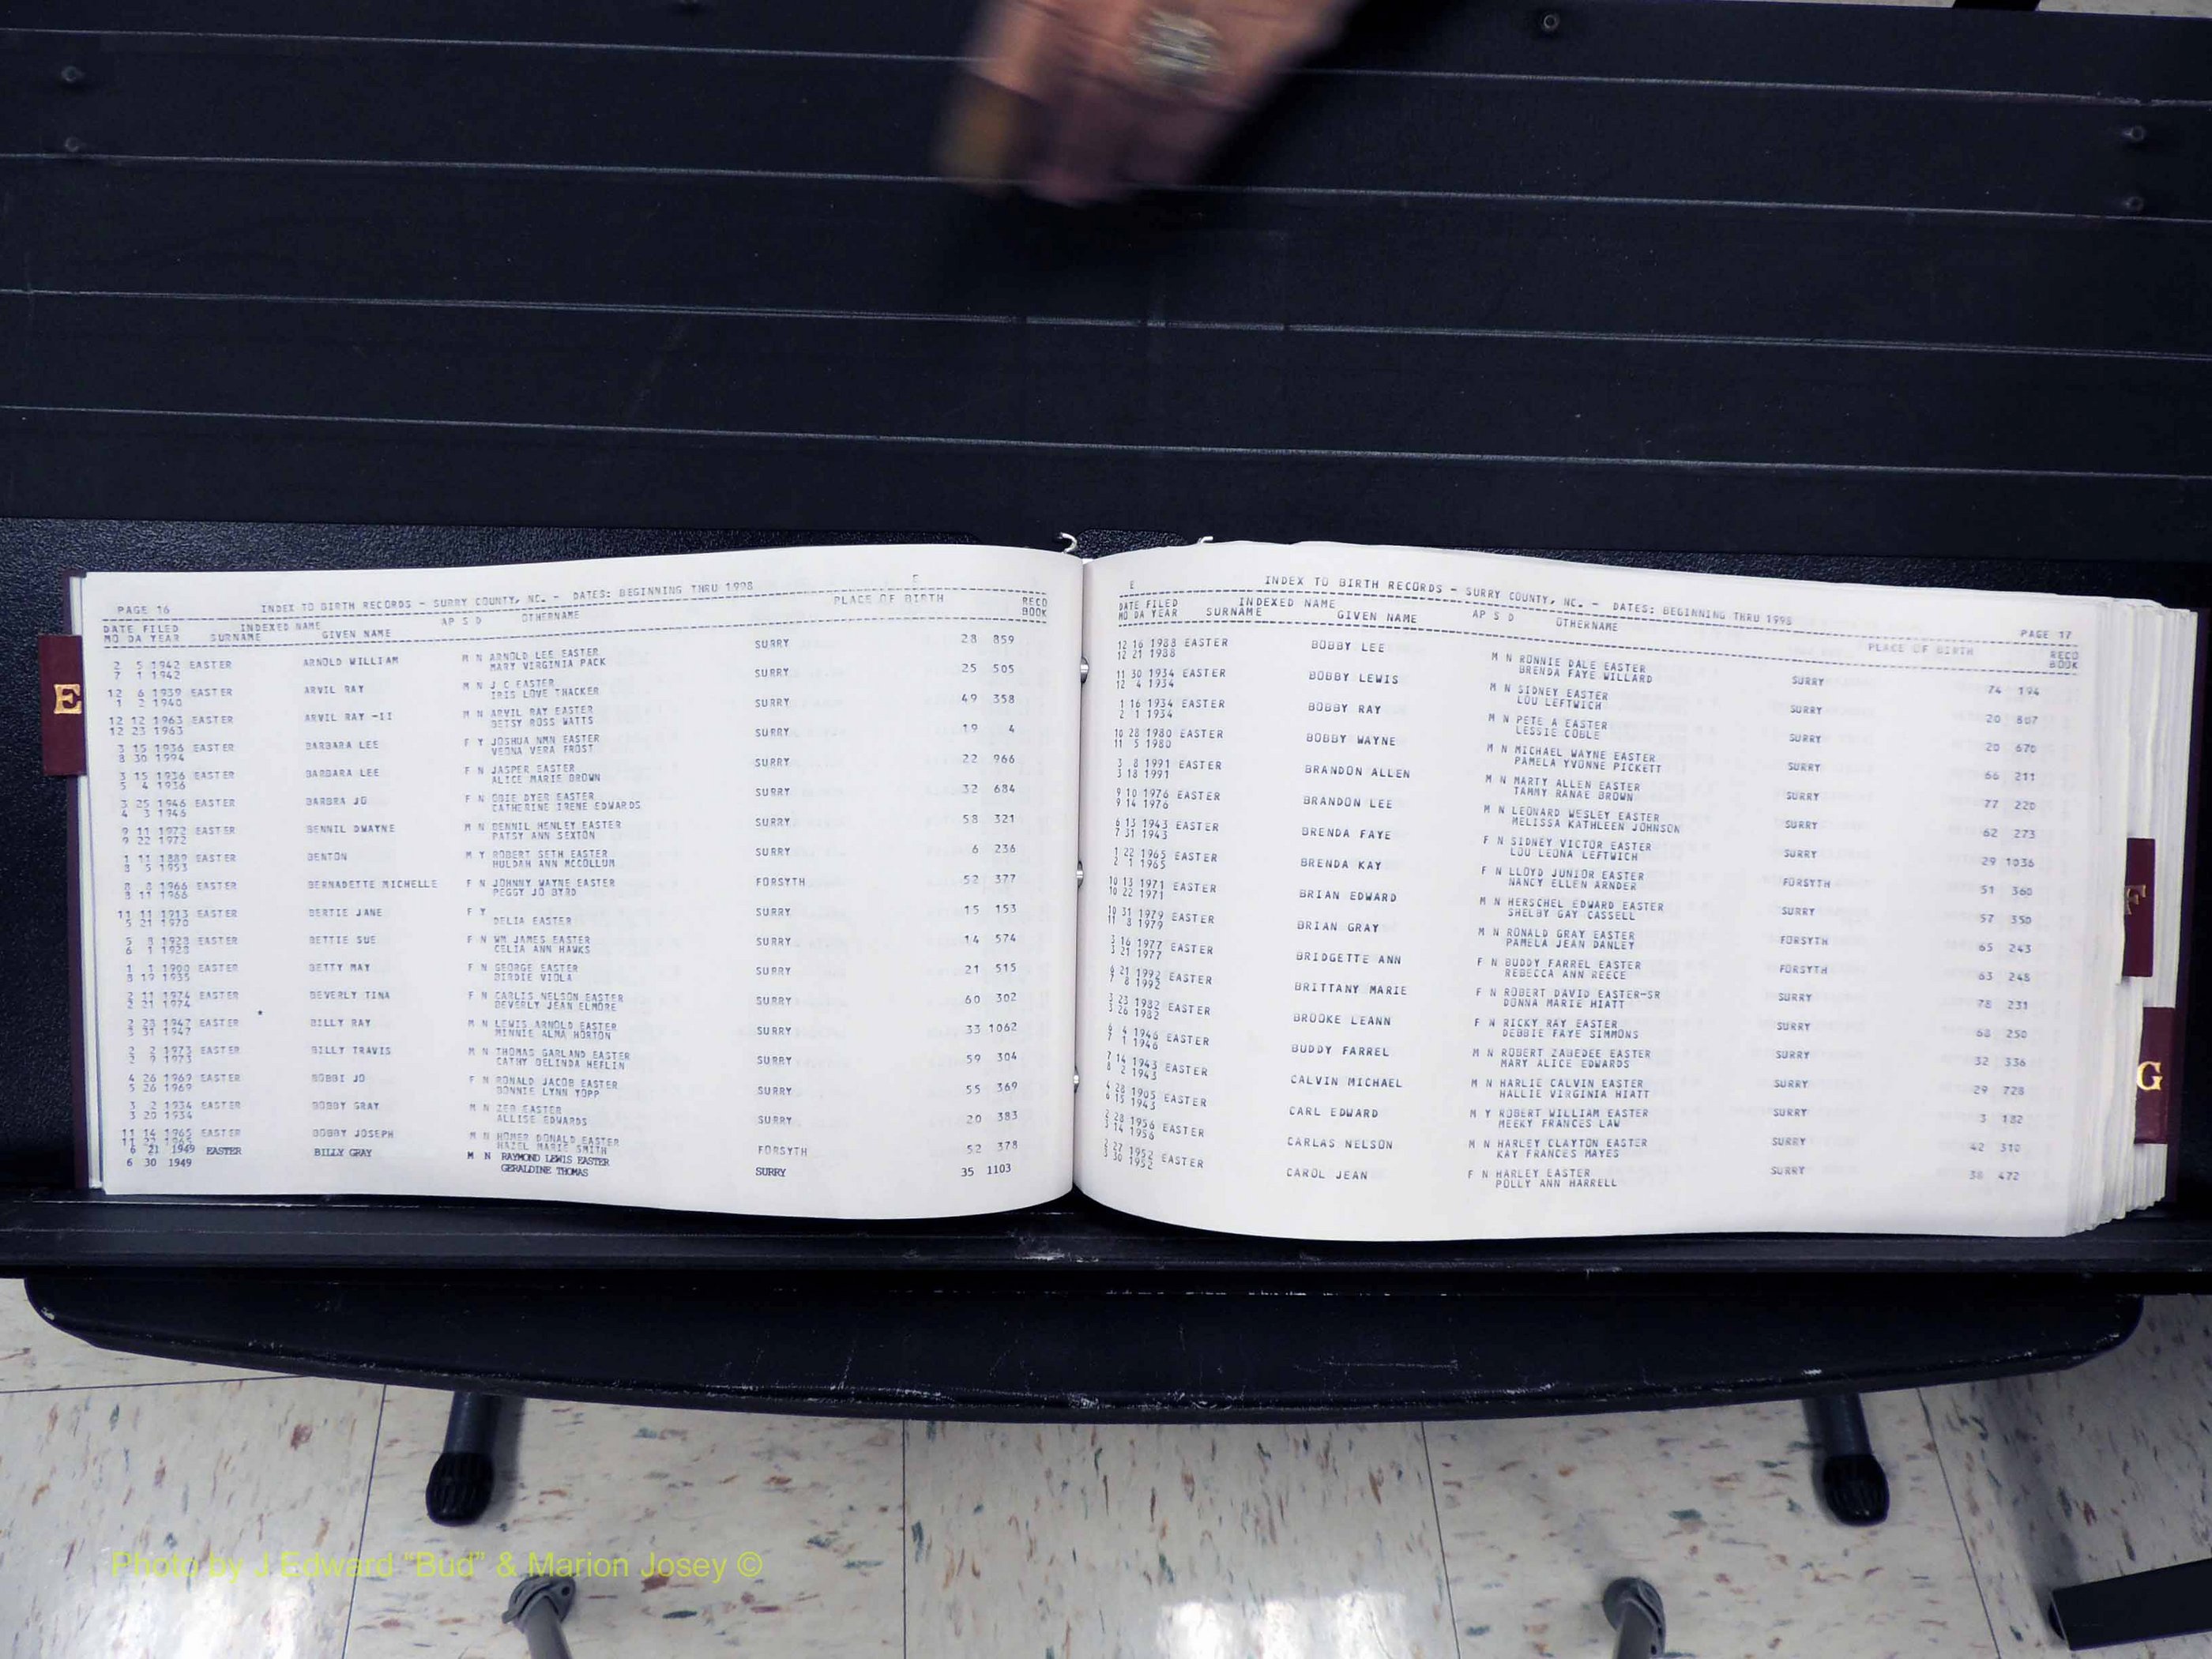 E
PAGE 16 INDEX TO BIRTH RECORDS - SURRY COUNTY, NC. - DATES: BEGINNING THRU 1998
DATE FILED INDEXED NAME AP S D OTHERNAME PLACE OF BIRTH RECO
MO DA YEAR SURNAME GIVEN NAME BOOK
2 5 1942 EASTER ARNOLD WILLIAM M N ARNOLD LEE EASTER SURRY 28 859
7 1 1942 MARY VIRGINIA PACK
12 6 1939 EASTER ARVIL RAY M N J C EASTER SURRY 25 505
1 2 1940 IRIS LOVE THACKER
12 12 1963 EASTER ARVIL RAY -II M N ARVIL RAY EASTER SURRY 49 358
12 23 1963 BETSY ROSS WATTS
3 15 1936 EASTER BARBARA LEE F Y JOSHUA NMN EASTER SURRY 19 4
8 30 1994 VERNA VERA FROST
3 15 1936 EASTER BARBARA LEE F N JASPER EASTER SURRY 22 966
5 4 1936 ALICE MARIE BROWN
3 25 1946 EASTER BARBRA JO F N OBIE DYER EASTER SURRY 32 684
4 3 1946 CATHERINE IRENE EDWARDS
9 11 1972 EASTER BENNIL DWAYNE M N BENNIL HENLEY EASTER SURRY 58 321
9 22 1972 PATSY ANN SEXTON
1 11 1889 EASTER BENTON M Y ROBERT SETH EASTER SURRY 6 236
8 5 1953 HULDAH ANN MCCOLLUM
8 8 1966 EASTER BERNADETTE MICHELLE F N JOHNNY WAYNE EASTER FORSYTH 52 377
8 11 1966 PEGGY JO BYRD
11 11 1913 EASTER BERTIE JANE F Y SURRY 15 153
5 21 1970 DELIA EASTER
5 8 1928 EASTER BETTIE SUE F N WM JAMES EASTER SURRY 14 574
6 1 1928 CELIA ANN HAWKS
1 1 1900 EASTER BETTY MAY F N GEORGE EASTER SURRY 21 515
8 19 1935 BIRDIE VIOLA
2 11 1974 EASTER BEVERLY TINA F N CARLIS NELSON EASTER SURRY 60 302
2 21 1974 BEVERLY JEAN ELMORE
2 28 1947 EASTER BILLY RAY M N LEWIS ARNOLD EASTER SURRY 33 1062
3 31 1947 MINNIE ALMA HORTON
2 2 1973 EASTER BILLY TRAVIS M N THOMAS GARLAND EASTER SURRY 59 304
2 9 1973 CATHY DELINDA HEFLIN
4 26 1969 EASTER BOBBI JO F N RONALD JACOB EASTER SURRY 55 369
5 26 1969 BONNIE LYNN YOPP
3 2 1934 EASTER BOBBY GRAY M N ZEB EASTER SURRY 20 383
3 20 1934 ALLISE EDWARDS
11 14 1965 EASTER BOBBY JOSEPH M N HOMER DONALD EASTER FORSYTH 52 378
HAZEL MARIE SMITH
6 21 1949 EASTER BILLY GRAY M N RAYMOND LEWIS EASTER SURRY 35 1103
6 30 1949 GERALDINE THOMAS
E
INDEX TO BIRTH RECORDS - SURRY COUNTY, NC. - DATES: BEGINNING THRU 1998 PAGE 17
DATE FILED INDEXED NAME AP S D OTHERNAME PLACE OF BIRTH RECO
MO DA YEAR SURNAME GIVEN NAME BOOK
12 16 1988 EASTER BOBBY LEE M N RONNIE DALE EASTER SURRY 74 194
12 21 1988 BRENDA FAYE WILLARD
11 30 1934 EASTER BOBBY LEWIS M N SIDNEY EASTER SURRY 20 807
12 4 1934 LOU LEFTWICH
1 16 1934 EASTER BOBBY RAY M N PETE A EASTER SURRY 20 670
2 1 1934 LESSIE COBLE
10 28 1980 EASTER BOBBY WAYNE M N MICHAEL WAYNE EASTER SURRY 66 211
11 5 1980 PAMELA YVONNE PICKETT
3 8 1991 EASTER BRANDON ALLEN M N MARTY ALLEN EASTER SURRY 77 220
3 18 1991 TAMMY RANAE BROWN
9 10 1976 EASTER BRANDON LEE M N LEONARD WESLEY EASTER SURRY 62 273
9 14 1976 MELISSA KATHLEEN JOHNSON
6 13 1943 EASTER BRENDA FAYE F N SIDNEY VICTOR EASTER SURRY 29 1036
7 31 1943 LOU LEONA LEFTWICH
1 22 1965 EASTER BRENDA KAY F N LLOYD JUNIOR EASTER FORSYTH 51 360
2 1 1965 NANCY ELLEN ARNDER
10 13 1971 EASTER BRIAN EDWARD M N HERSCHEL EDWARD EASTER SURRY 57 350
10 22 1971 SHELBY GAY CASSELL
10 31 1979 EASTER BRIAN GRAY M N RONALD GRAY EASTER FORSYTH 65 243
11 8 1979 PAMELA JEAN DANLEY
3 16 1977 EASTER BRIDGETTE ANN F N BUDDY FARREL EASTER FORSYTH 63 248
3 21 1977 REBECCA ANN REECE
6 21 1992 EASTER BRITTANY MARIE F N ROBERT DAVID EASTER-SR SURRY 78 231
7 8 1992 DONNA MARIE HIATT
3 23 1982 EASTER BROOKE LEANN F N RICKY RAY EASTER SURRY 68 250
3 26 1982 DEBBIE FAYE SIMMONS
6 4 1946 EASTER BUDDY FARREL M N ROBERT ZABEDEE EASTER SURRY 32 336
7 1 1946 MARY ALICE EDWARDS
7 14 1943 EASTER CALVIN MICHAEL M N HARLIE CALVIN EASTER SURRY 29 728
8 2 1943 HALLIE VIRGINIA HIATT
4 28 1905 EASTER CARL EDWARD M Y ROBERT WILLIAM EASTER SURRY 3 182
6 15 1943 MEEKY FRANCES LAW
2 28 1956 EASTER CARLAS NELSON M N HARLEY CLAYTON EASTER SURRY 42 310
3 14 1956 KAY FRANCES MAYES
2 27 1952 EASTER CAROL JEAN F N HARLEY EASTER SURRY 38 472
3 30 1952 POLLY ANN HARRELL
E
F
G
Photo by J Edward "Bud" & Marion Josey ©